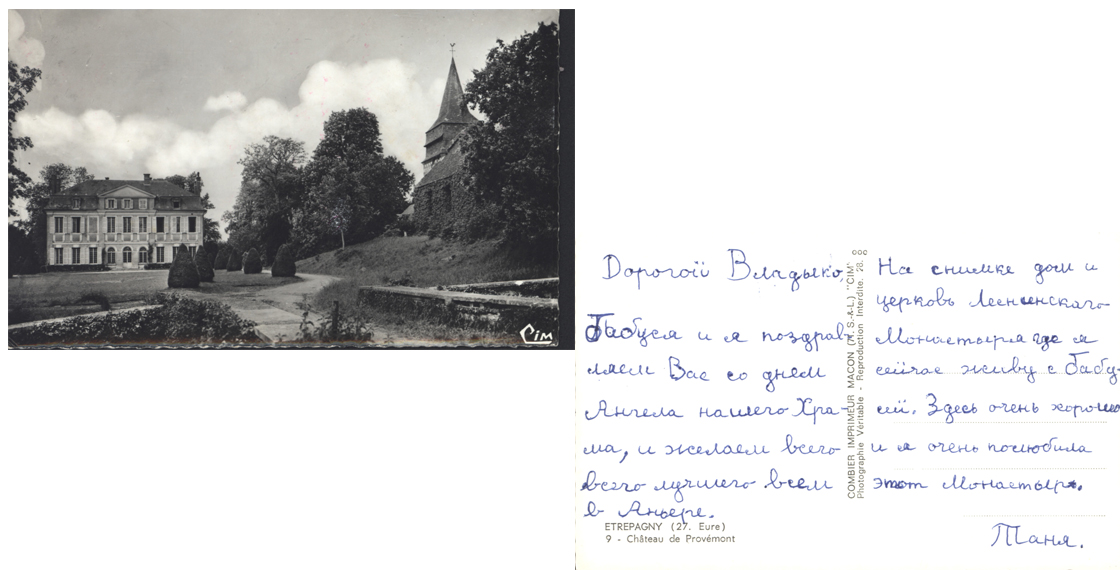 Cim
Дорогой Владыко,
Бабуся и я поздрав-
ляем Вас со днем
Ангела нашего Хра-
ма, и желаем всего
всего лучшего всем
в Аньере.
ETREPAGNY (27. Eure)
9 - Château de Provémont
COMBIER IMPRIMEUR MACON (S.-&-L.) "CIM"
Photographie Véritable - Reproduction Interdite.
На снимке дом и
церковь Леснинскаго
Монастыря где я
сейчас живу с Бабу-
сей. Здесь очень хорошо
и я очень полюбила
этот Монастырь.
Таня.